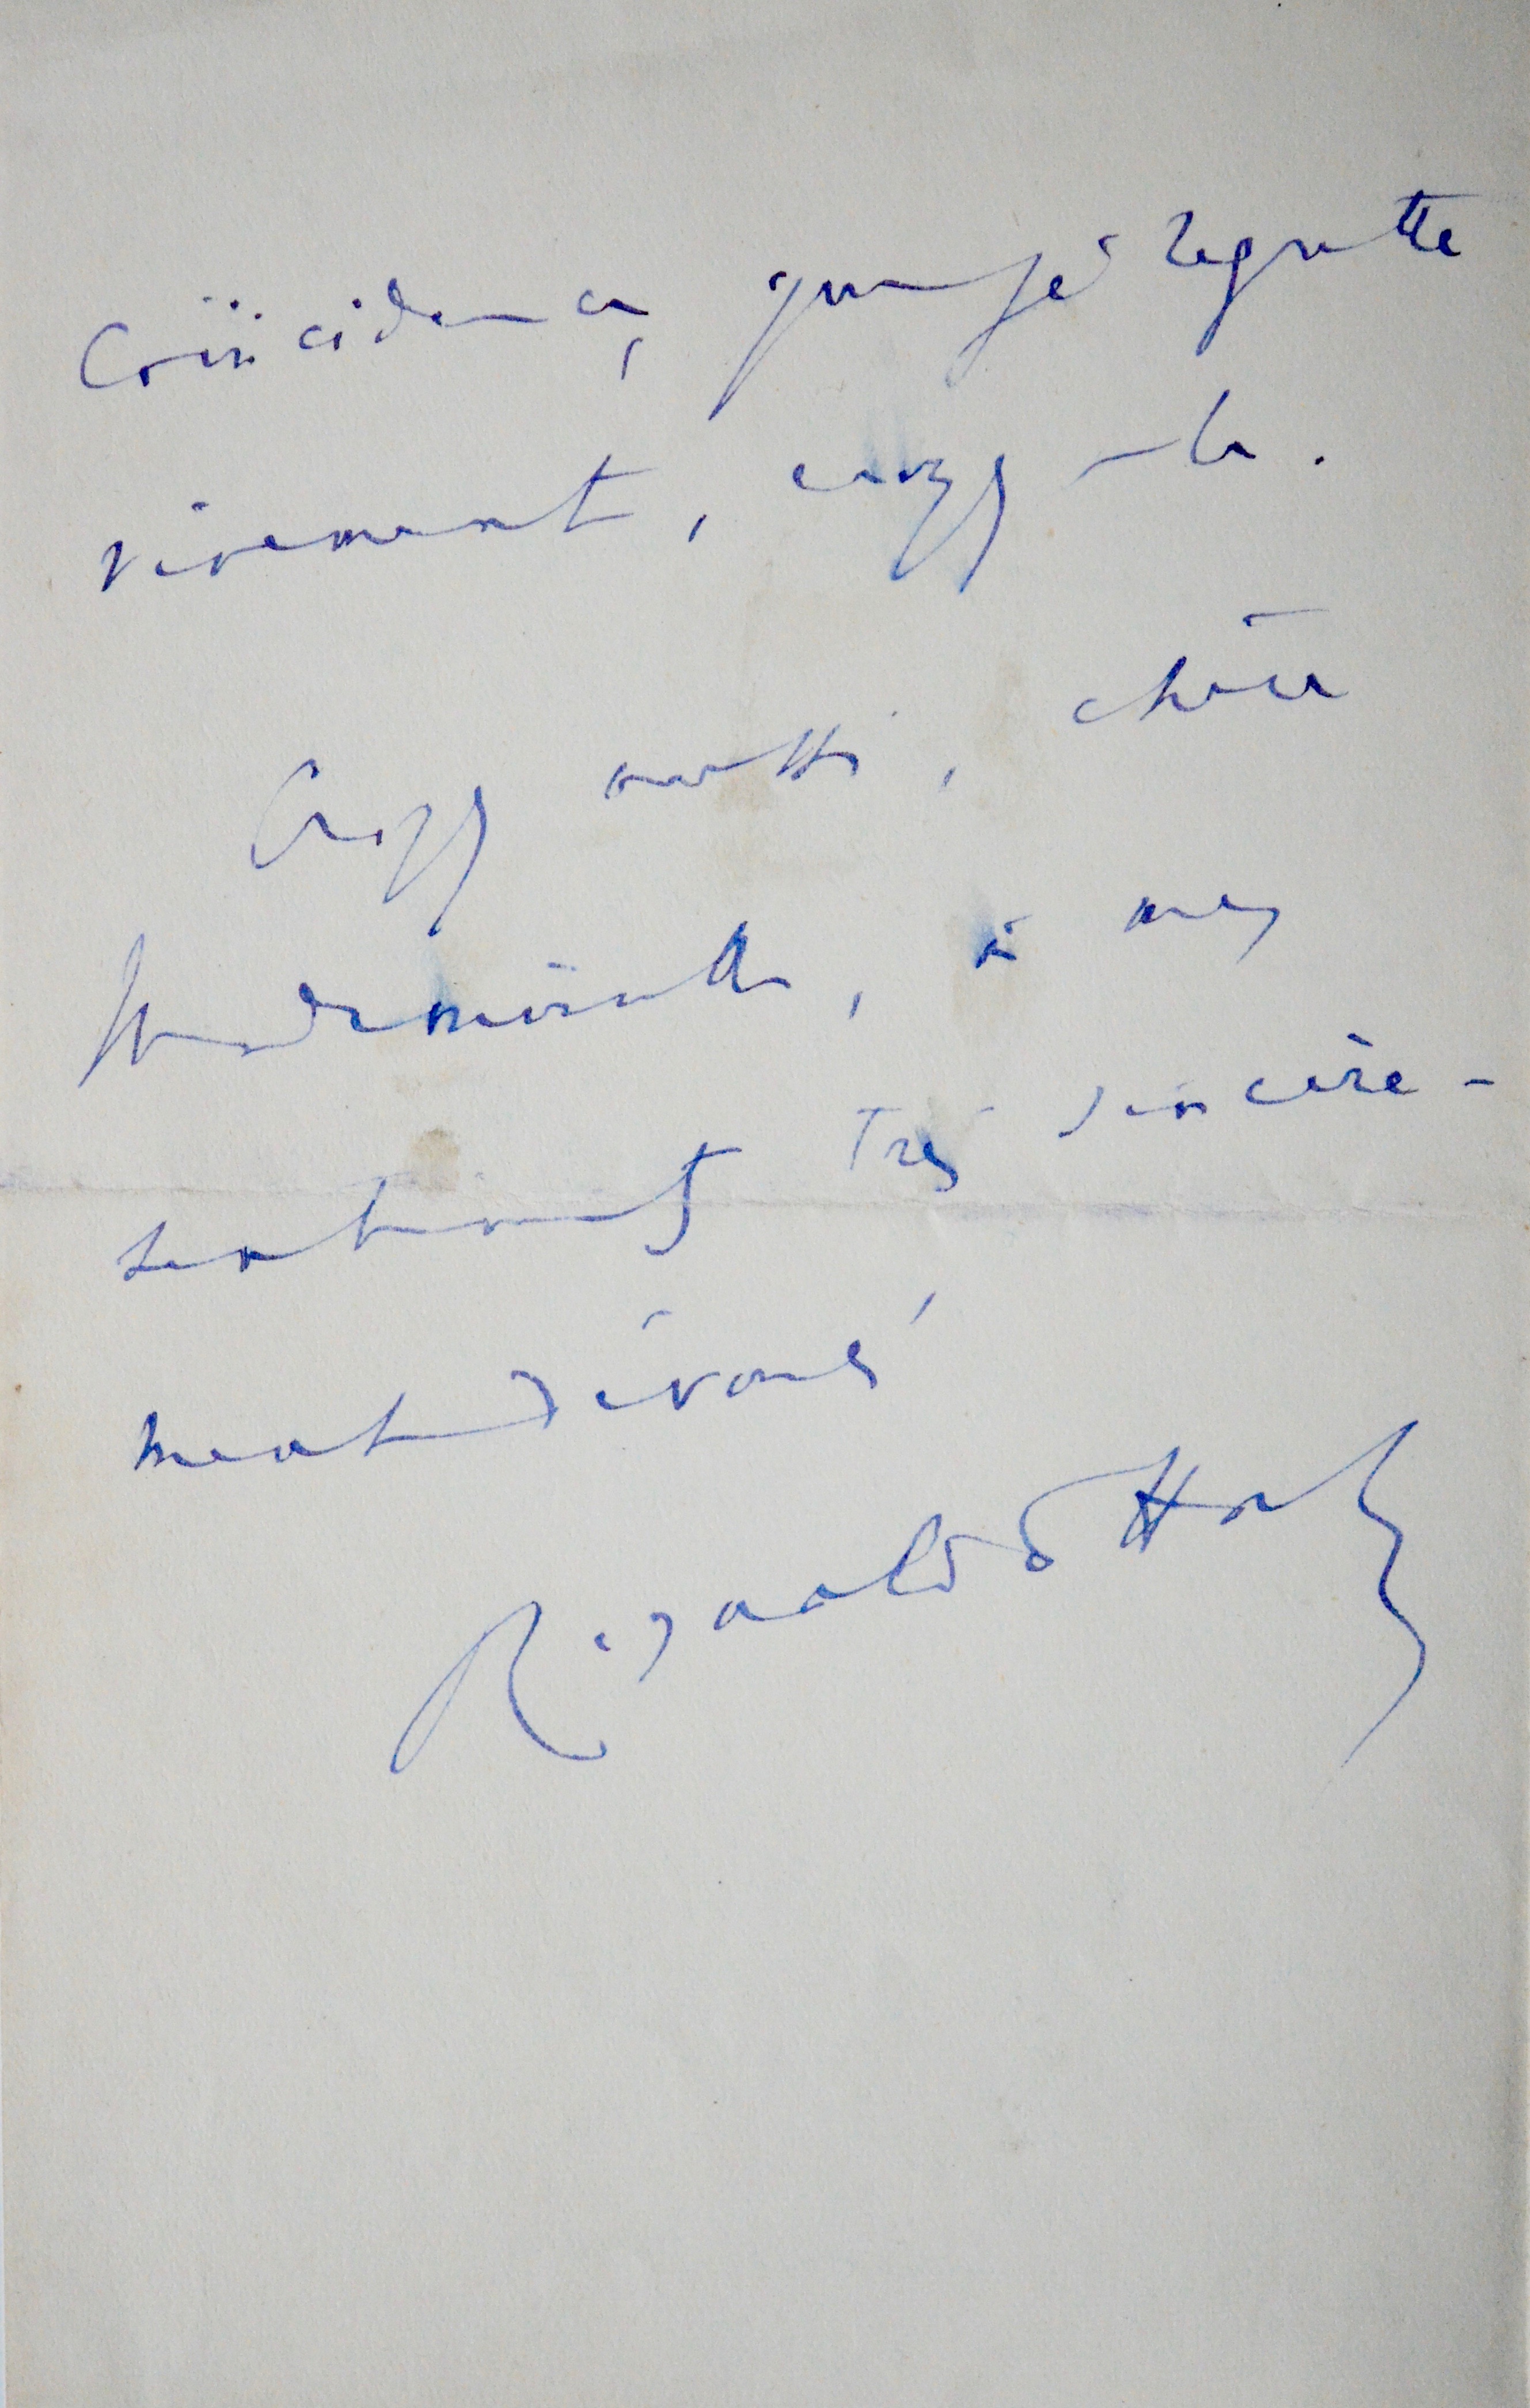 Coïncidence, que je regrette
vivement, croyez-le.
Croyez aussi, chère
Mademoiselle, à mes
sentiments très sincère-
ment dévoués,
Reynaldo Hahn